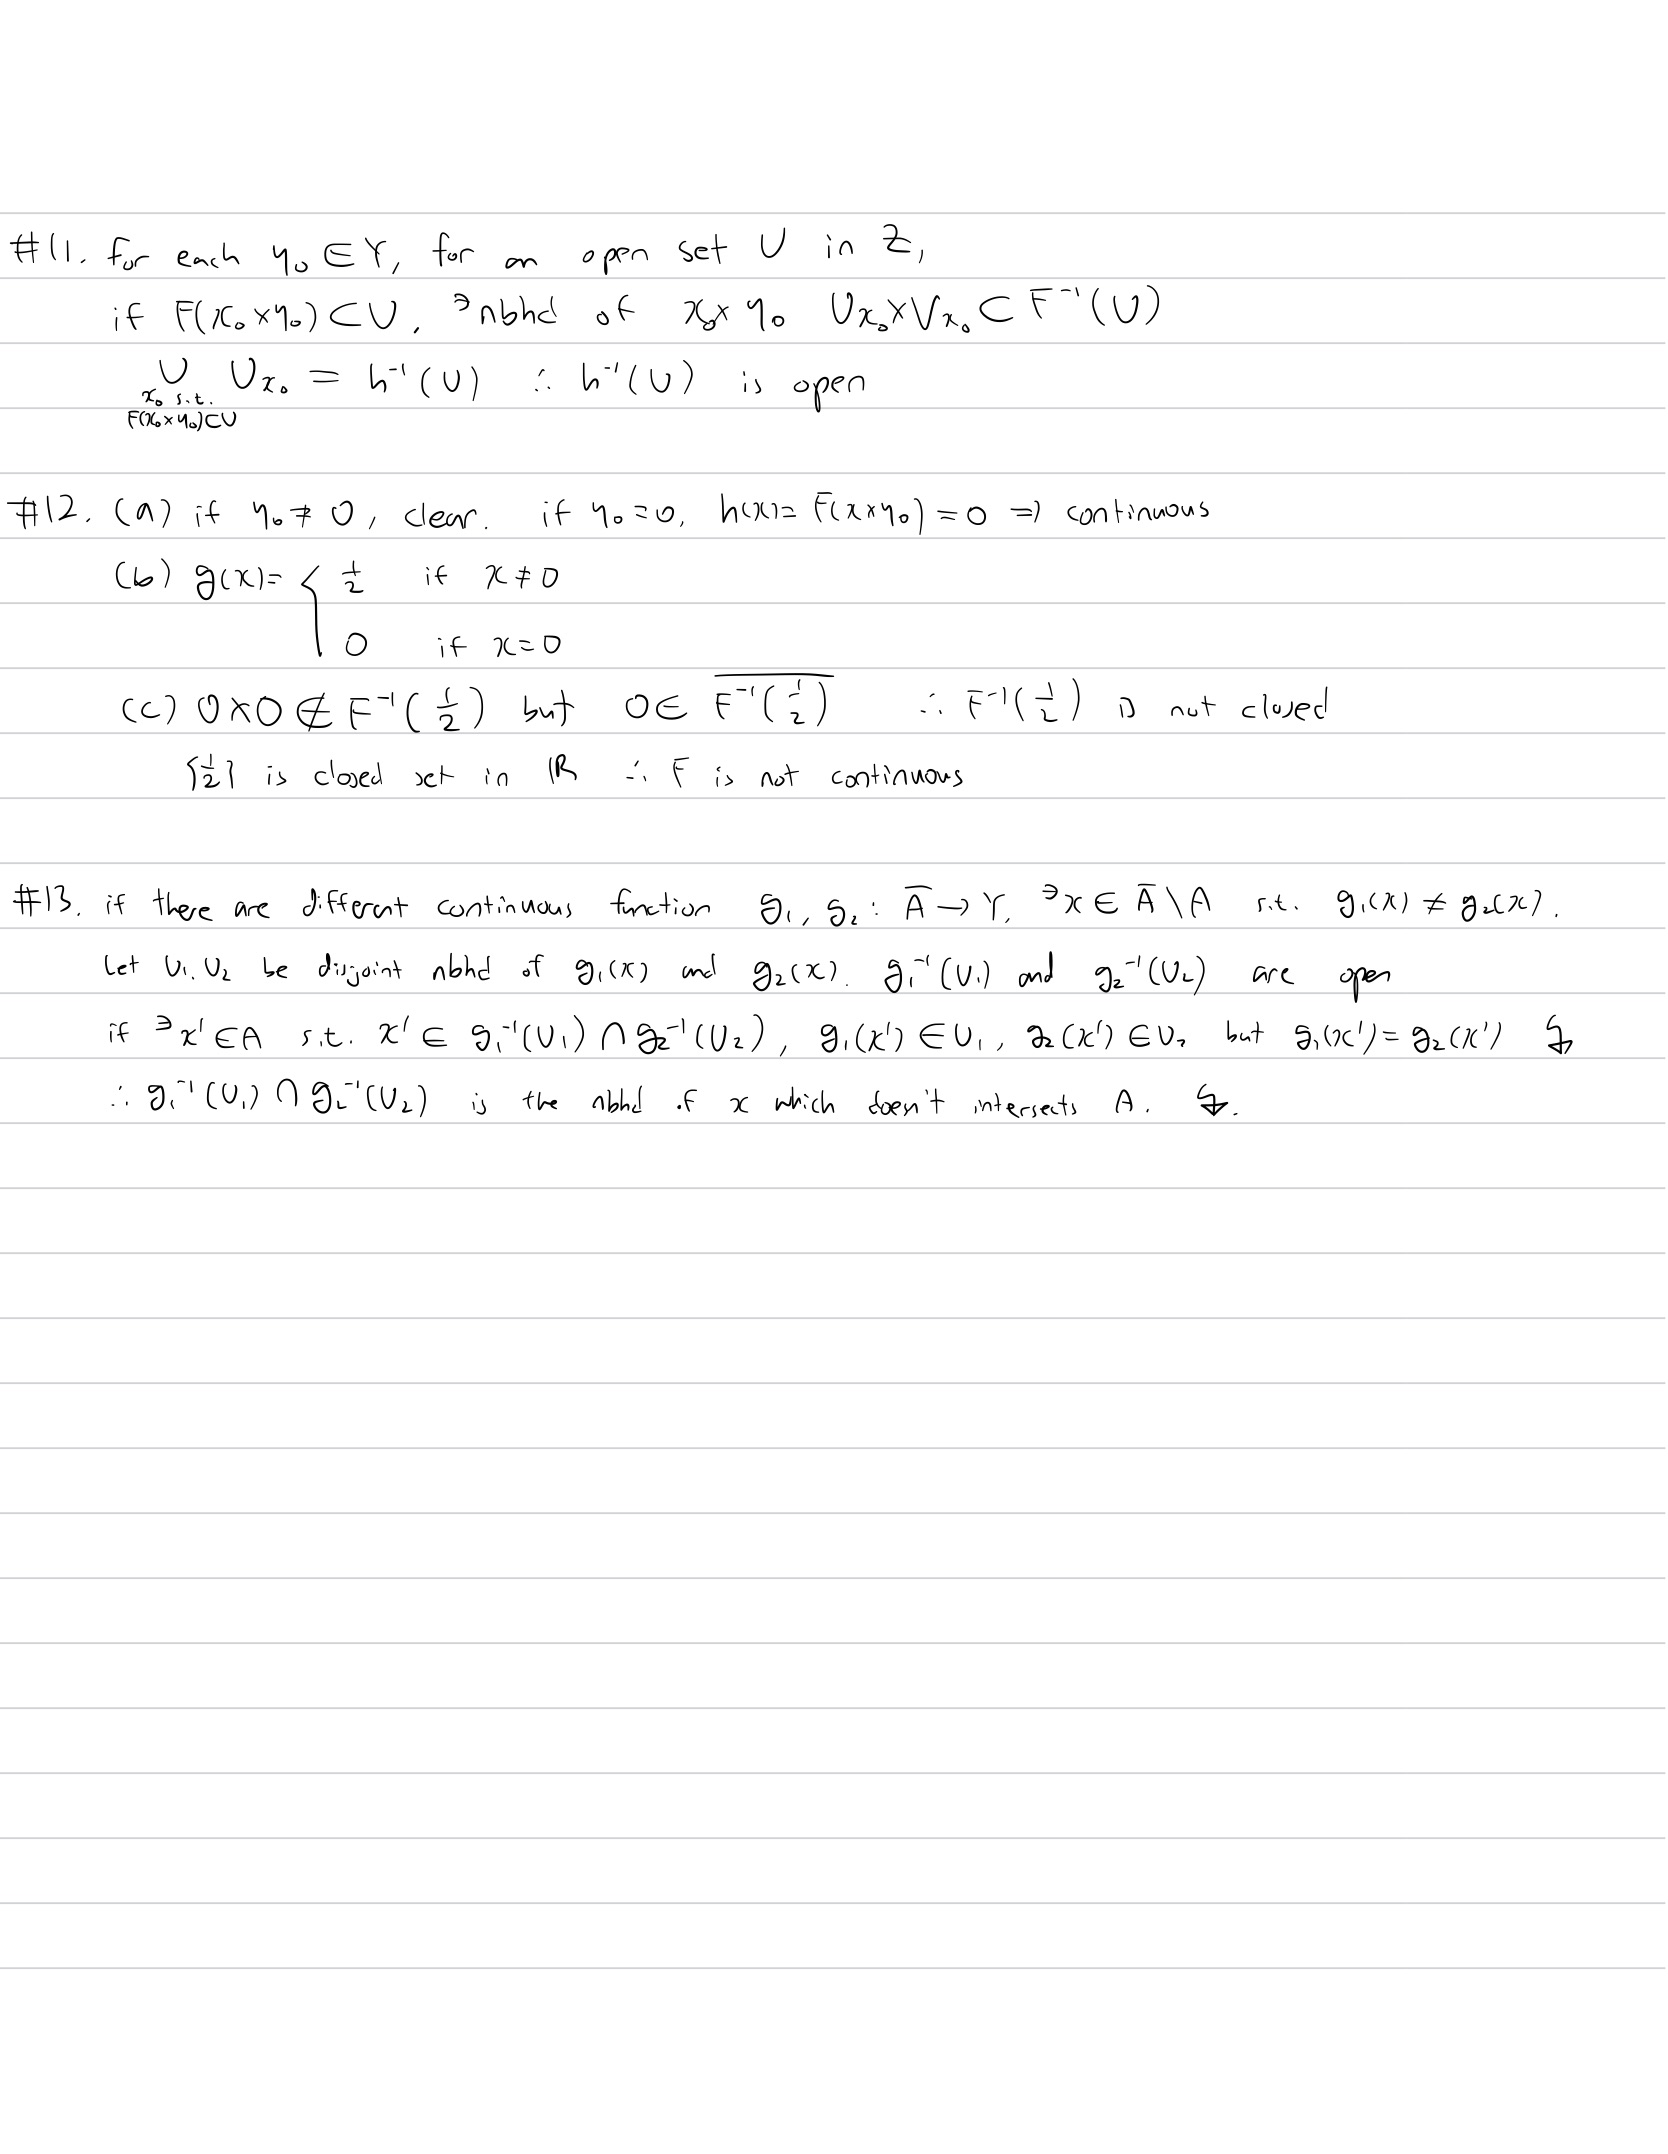 #11. for each y₀ ∈ Y, for an open set U in Z,
if F(x₀ × y₀) ⊂ U, ∃nbhd of x₀ × y₀ U_x₀ × V_x₀ ⊂ F⁻¹(U)
∪ U_x₀ = h⁻¹(U) ∴ h⁻¹(U) is open
x₀ s.t.
F(x₀×y₀)⊂U
#12. (a) if y₀ ≠ 0, clear. if y₀ = 0, h(x) = F(x × y₀) = 0 ⇒ continuous
(b) g(x) = { 1/2 if x ≠ 0
0 if x = 0
(c) 0×0 ∉ F⁻¹(1/2) but 0 ∈ \overline{F⁻¹(1/2)} ∴ F⁻¹(1/2) is not closed
{1/2} is closed set in ℝ ∴ F is not continuous
#13. if there are different continuous function g₁, g₂ : Ā → Y, ∃x ∈ Ā \ A s.t. g₁(x) ≠ g₂(x).
Let U₁, U₂ be disjoint nbhd of g₁(x) and g₂(x). g₁⁻¹(U₁) and g₂⁻¹(U₂) are open
if ∃x' ∈ A s.t. x' ∈ g₁⁻¹(U₁) ∩ g₂⁻¹(U₂), g₁(x') ∈ U₁, g₂(x') ∈ U₂ but g₁(x') = g₂(x') ↯
∴ g₁⁻¹(U₁) ∩ g₂⁻¹(U₂) is the nbhd of x which doesn't intersects A. ↯.